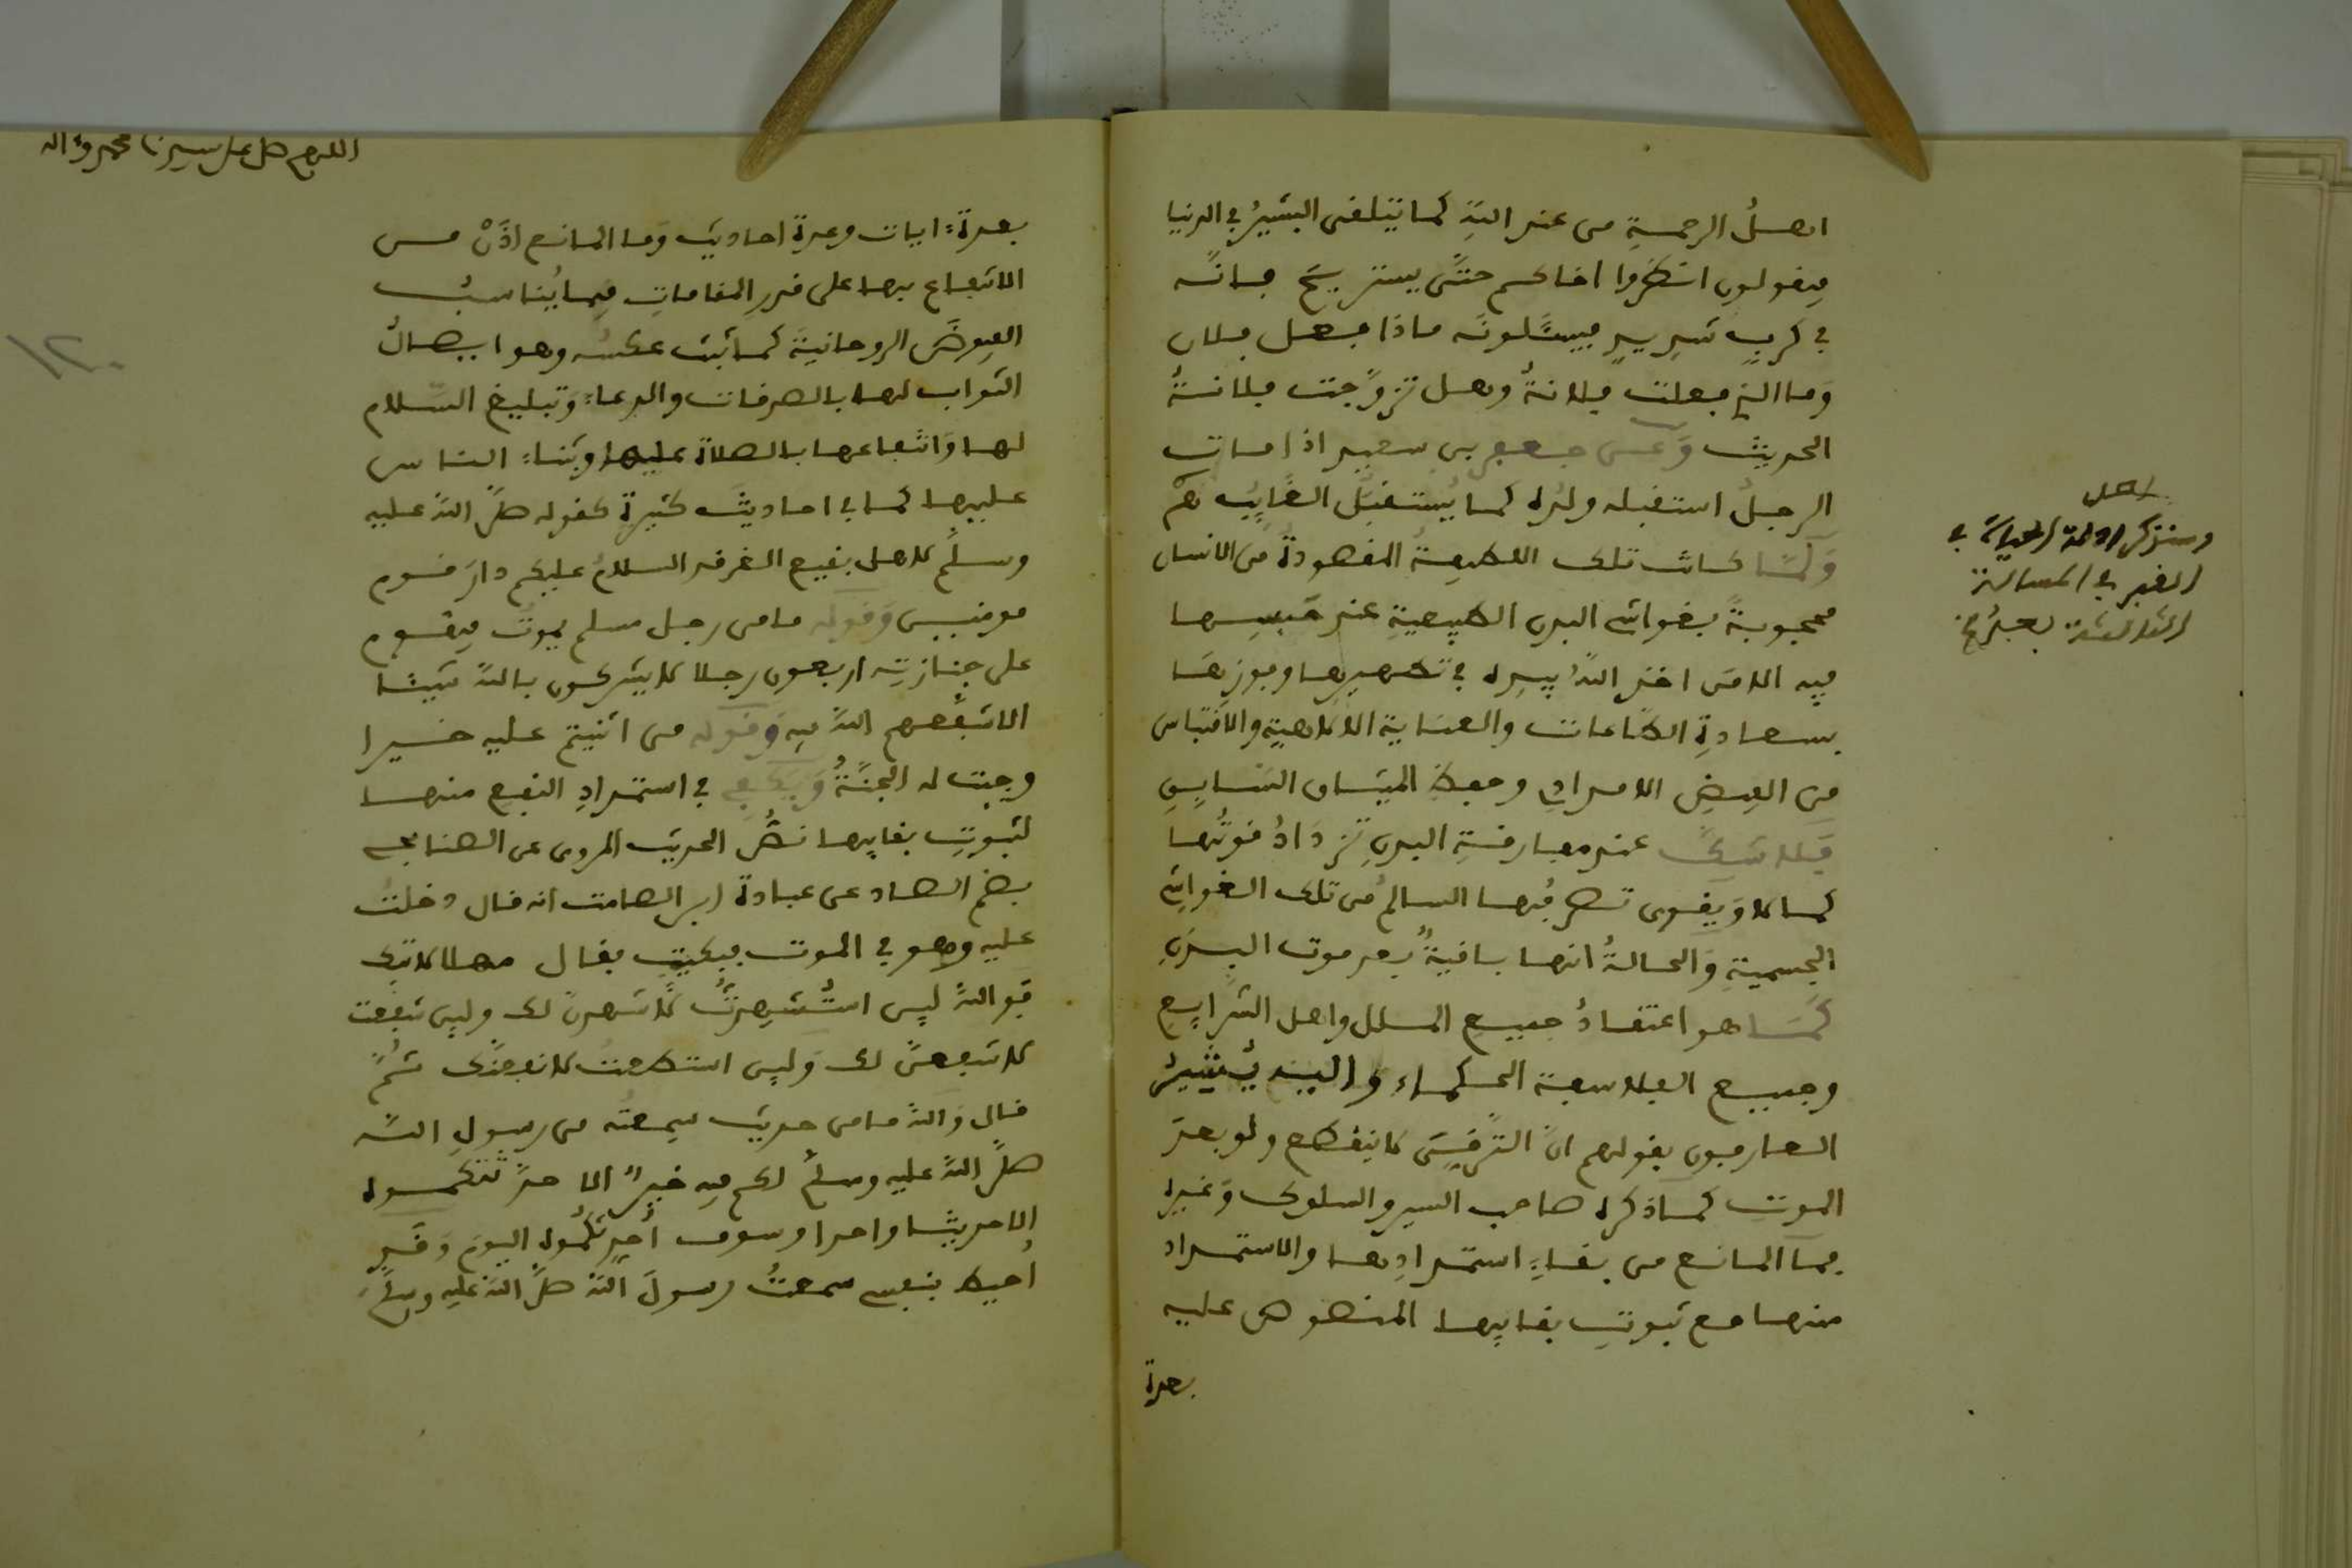 اهلُ الرحمةِ من عند اللهِ كما يتلقى البشيرُ في الدنيا
فيقولون انظروا اخاكم حتَّى يستريحَ فانَّه
في كربٍ شديدٍ فيسئَلونه ماذا فعل فلان
وَما الذي فعلت فلانةُ وهل تزوَّجت فلانةُ
الحديث وَعن جعفر بن سعيد اذا مات
الرجلُ استقبله ولدُه كما يُستقبَلُ الغَايِبُ ثم
وَلَمَّا كانت تلك اللطيفةُ المقصودةُ من الانسان
محجوبةً بغواشي البدن الطبيعيةِ عند حَبسِها
فيه الا مَن اخذ اللهُ بيدِه في تطهيرها وفوزِها
بسعادةِ الطاعات والعناية الالاهيةِ والاقتباس
من الفيضِ الامدادي وحفظِ الميثاق السَّابِقِ
فَلا شكَّ عند مفارقةِ البدنِ تزدَادُ قوتُها
كمالا وَيقوى تصرفُها السالمُ من تلك الغواشي
الجسميةِ وَالحالةُ انها باقيةٌ بعد موت البدنِ
كَمَا هو اعتقادُ جميعِ الملل واهل الشرَايِعِ
وجميع الفلاسفة الحكماء واليه يُشيرُ
العارفون بقولهم انَّ التَّرقِّيَ لا ينقطع ولو بعدَ
الموتِ كما ذكره صاحب السير والسلوك وَغيرِه
فما المانع من بقاءِ استمدادِها والاستمداد
منها مع ثبوتِ بقايها المنصوص عليه
بعدة
اصل
وستذكر ادلة الحياة في
القبر في المسالة
الثالثة بعدُ
اللهم صل على سيدنا محمد وءاله
بعدةِ ايات وعدةِ احاديث وَما المانع اذَنْ من
الانتفاع بها على قدر المقاماتِ فيما يُناسبُ
الفيوضَ الروحانيةَ كما ثبت عكسُه وهو ايصالُ
الثواب لها بالصدقات والدعاءِ وَتبليغ السَّلام
لها وَانتفاعها بالصلاة عليها وثناءِ الناس
عليها كما في احاديثَ كثيرةٍ كقوله صلَّى الله عليه
وسلَّم لاهل بقيع الغرقد السلامُ عليكم دارَ قوم
مومنين وَقوله ما من رجل مسلم يموتُ فيقوم
على جنازتِه اربعون رجلا لا يشركون بالله شيئا
الا شفَّعهم اللهُ فيه وَقوله من اثنيتم عليه خيرا
وجبت له الجنَّةُ وَيكفي في استمدادِ النفعِ منها
لثبوتِ بقايها نصُّ الحديث المروي عن الصنابحي
بضم الصاد عن عبادة ابن الصامت انه قال دخلتُ
عليه وهو في الموت فبكيتُ فقال مهلا لا تبك
فَوالله لين استُشهدتُ لاشهدنَّ لك ولين شفعت
لاشفعنَّ لك وَلين استطعتُ لانفعنَّك ثُمَّ
قال وَالله ما من حديث سمِعتُه من رسولِ الله
صلَّى الله عليه وسلَّم لكم فيه خيرٌ الا حدَّثتكموه
إلا حديثا واحدا وسوف أُحدِّثكُموه اليومَ وَقد
أُحيط بنفسي سمعتُ رسولَ الله صلَّى الله عليه وسلَّم